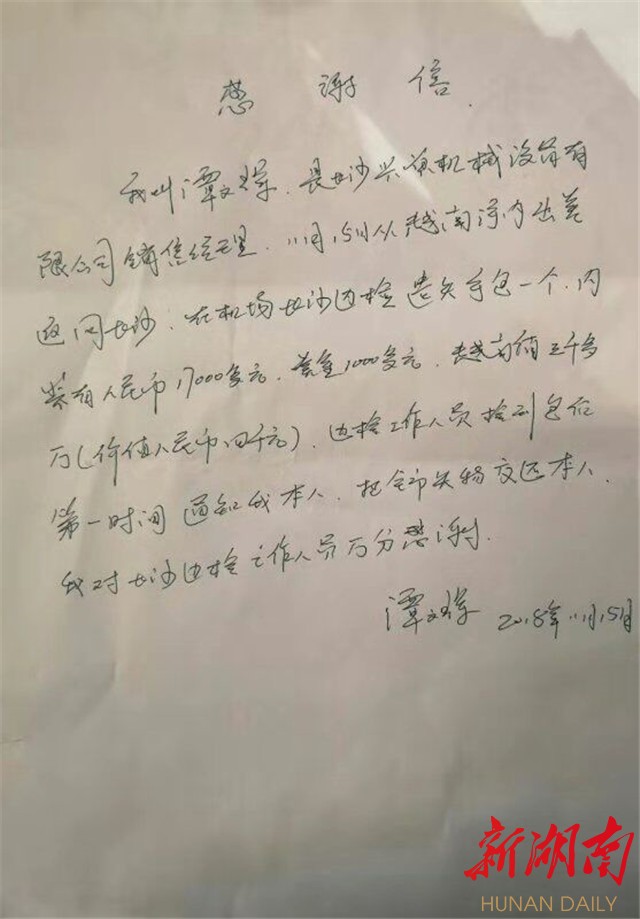 感 谢 信.
我叫谭文 . 是长沙兴 机械设备有
限公司销售经理. 11月15日从越南河内出差
返回长沙. 在机场长沙边检遗失手包一个. 内
装有人民币17000多元. 美金1000多元. 越南盾三千多
万(价值人民币 千元). 边检工作人员捡到包后
第一时间通知我本人. 把全部失物交还本人.
我对长沙边检工作人员万分感谢.
谭文 2018年11月15日
新湖南
HUNAN DAILY